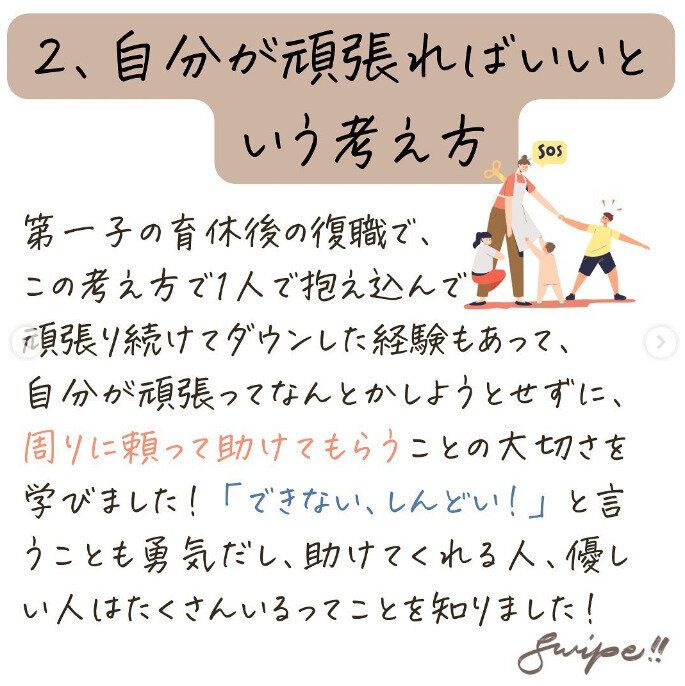 2、自分が頑張ればいいと
いう考え方
SOS
第一子の育休後の復職で、
この考え方で1人で抱え込んで
頑張り続けてダウンした経験もあって、
自分が頑張ってなんとかしようとせずに、
周りに頼って助けてもらうことの大切さを
学びました!「できない、しんどい!」と言
うことも勇気だし、助けてくれる人、優し
い人はたくさんいるってことを知りました!
Swipe!!